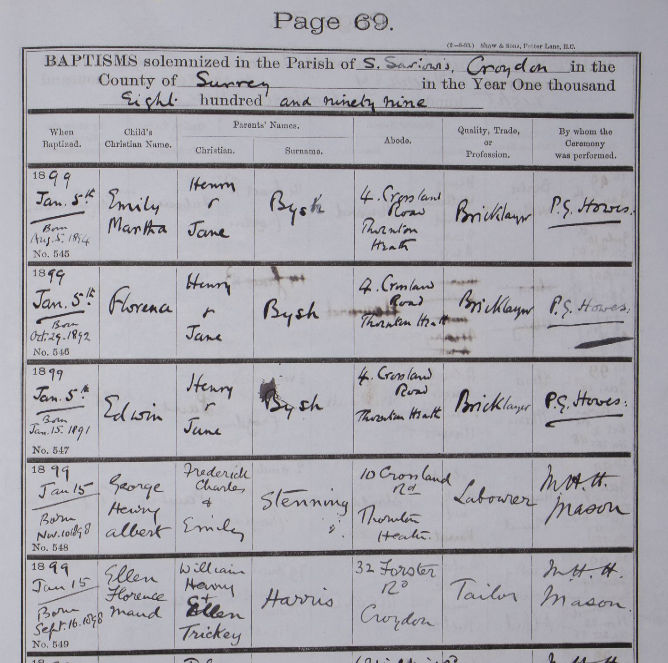 Page 69.
(2-8-93.) Shaw & Sons, Fetter Lane, E.C.
BAPTISMS solemnized in the Parish of S. Saviour's, Croydon in the
County of Surrey in the Year One thousand
Eight hundred and ninety nine
When Baptized. Child's Christian Name. Parents' Names. Christian. Surname. Abode. Quality, Trade, or Profession. By whom the Ceremony was performed.
1899
Jan. 5th
Born
Aug. 5. 1894
No. 545
Emily
Martha
Henry
&
Jane
Bysh
4. Crossland
Road
Thornton
Heath
Bricklayer
P.G. Howes.
1899
Jan. 5th
Born
Oct. 29. 1892
No. 546
Florence
Henry
&
Jane
Bysh
4. Crossland
Road
Thornton Heath
Bricklayer
P.G. Howes.
1899
Jan. 5th
Born
Jan. 15. 1891
No. 547
Edwin
Henry
&
Jane
Bysh
4. Crossland
Road
Thornton Heath
Bricklayer
P.G. Howes.
1899
Jan 15
Born
Nov. 10 1898
No. 548
George
Henry
Albert
Frederick
Charles
&
Emily
Stenning
10 Crossland
Rd
Thornton
Heath.
Labourer
M.H.H.
Mason
1899
Jan 15
Born
Sept. 16. 1898
No. 549
Ellen
Florence
Maud
William
Henry
&
Ellen
Trickey
Harris
32 Forster
Rd
Croydon
Tailor
M.H.H.
Mason.